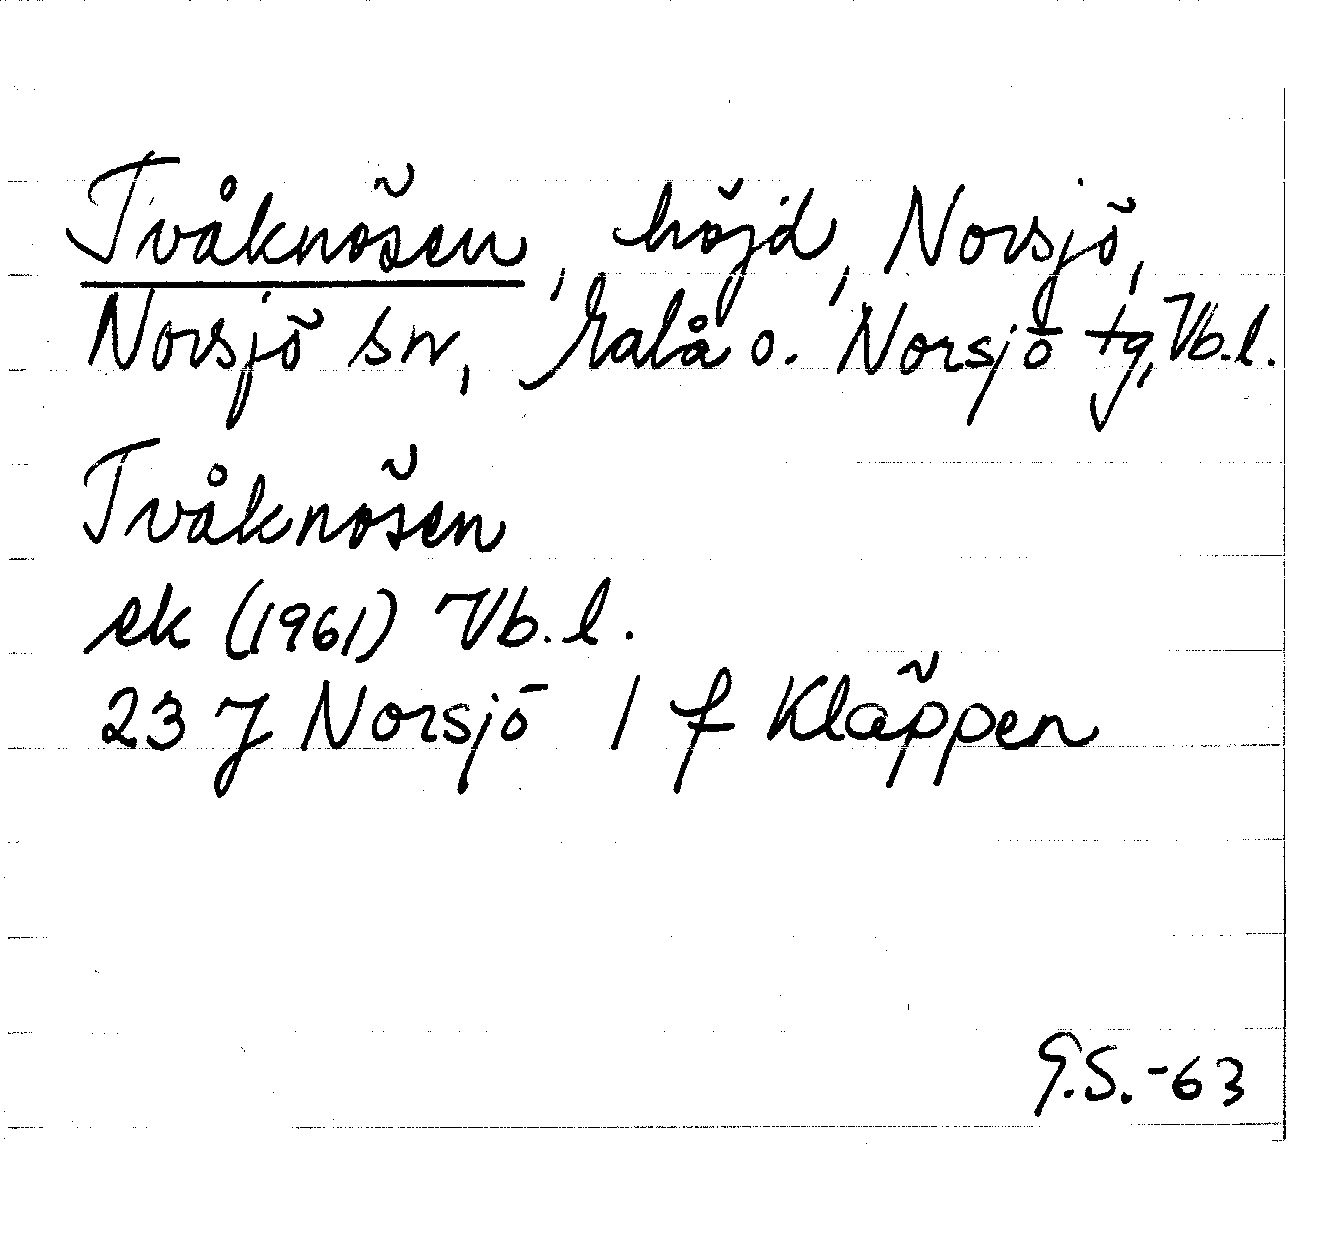 Tvåknösen, höjd, Norsjö,
Norsjö sn, Malå o. Norsjö tg, Vb.l.
Tvåknösen
ek (1961) Vb.l.
23 J Norsjö 1 f Kläppen
G.S. -63